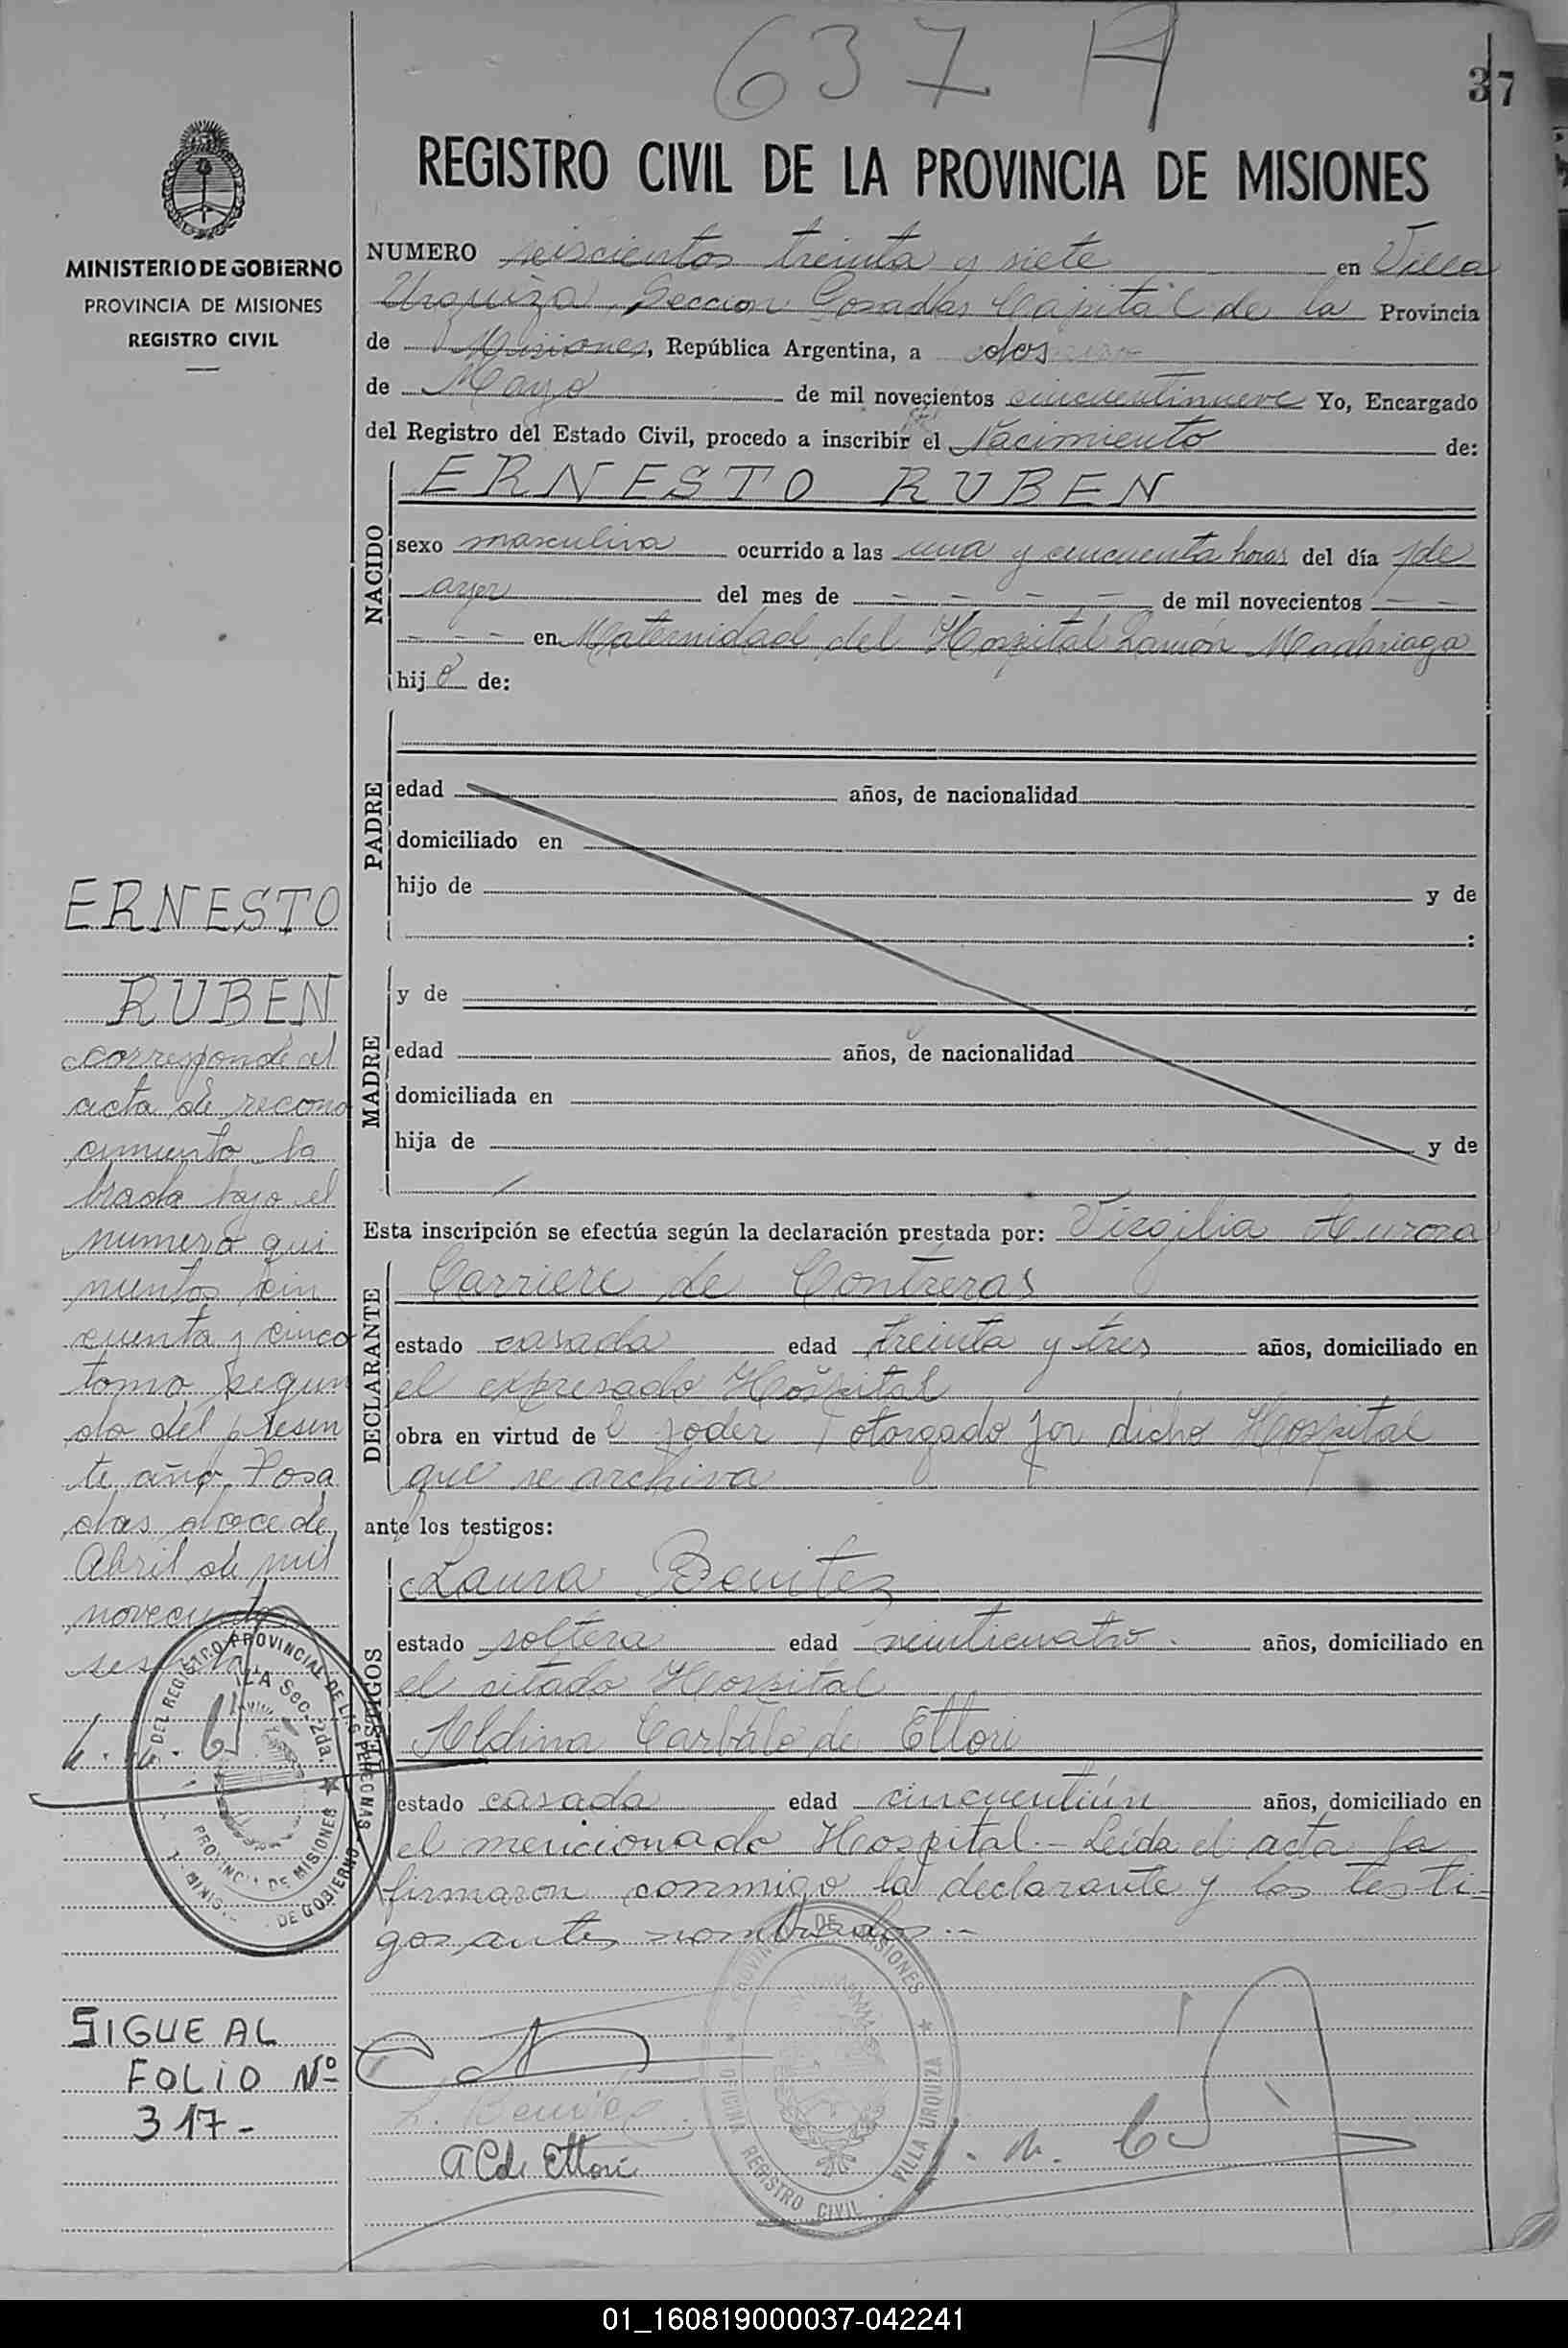 637 A
37
REGISTRO CIVIL DE LA PROVINCIA DE MISIONES
MINISTERIO DE GOBIERNO
PROVINCIA DE MISIONES
REGISTRO CIVIL
NUMERO seiscientos treinta y siete en Villa
Urquiza, Seccion Posadas Capital de la Provincia
de Misiones, República Argentina, a dos
de Mayo de mil novecientos cincuentinueve Yo, Encargado
del Registro del Estado Civil, procedo a inscribir el Nacimiento de:
NACIDO
ERNESTO RUBEN
sexo masculino ocurrido a las una y cincuenta horas del día de
ayer del mes de - - - - de mil novecientos - -
- - - en Maternidad del Hospital Ramón Madariaga
hijo de:
PADRE
edad años, de nacionalidad
domiciliado en
hijo de y de
:
MADRE
y de
edad años, de nacionalidad
domiciliada en
hija de y de
Esta inscripción se efectúa según la declaración prestada por: Virgilia Aurora
DECLARANTE
Carriere de Contreras
estado casada edad treinta y tres años, domiciliado en
el expresado Hospital
obra en virtud del poder otorgado por dicho Hospital
que se archiva
ante los testigos:
TESTIGOS
Laura Benitez
estado soltera edad veinticuatro. años, domiciliado en
el citado Hospital
Aldina Carbalo de Ettori
estado casada edad cincuentiún años, domiciliado en
el mencionado Hospital.- Leída el acta la
firmaron conmigo la declarante y los testi-
gos antes nombrados.-
L. Benitez
A C de Ettori
PROVINCIA DE MISIONES
OFICINA REGISTRO CIVIL - VILLA URQUIZA
ERNESTO
RUBEN
corresponde al
acta de recono
cimiento la
brada bajo el
numero qui
nientos cin
cuenta y cinco
tomo segun
do del presen
te año. Posa
das doce de
Abril de mil
novecientos
DEL REGISTRO PROVINCIAL DE LAS PERSONAS
Sec. 2da.
PROVINCIA DE MISIONES
MINIS. DE GOBIERNO
SIGUE AL
FOLIO Nº
317-
01_160819000037-042241